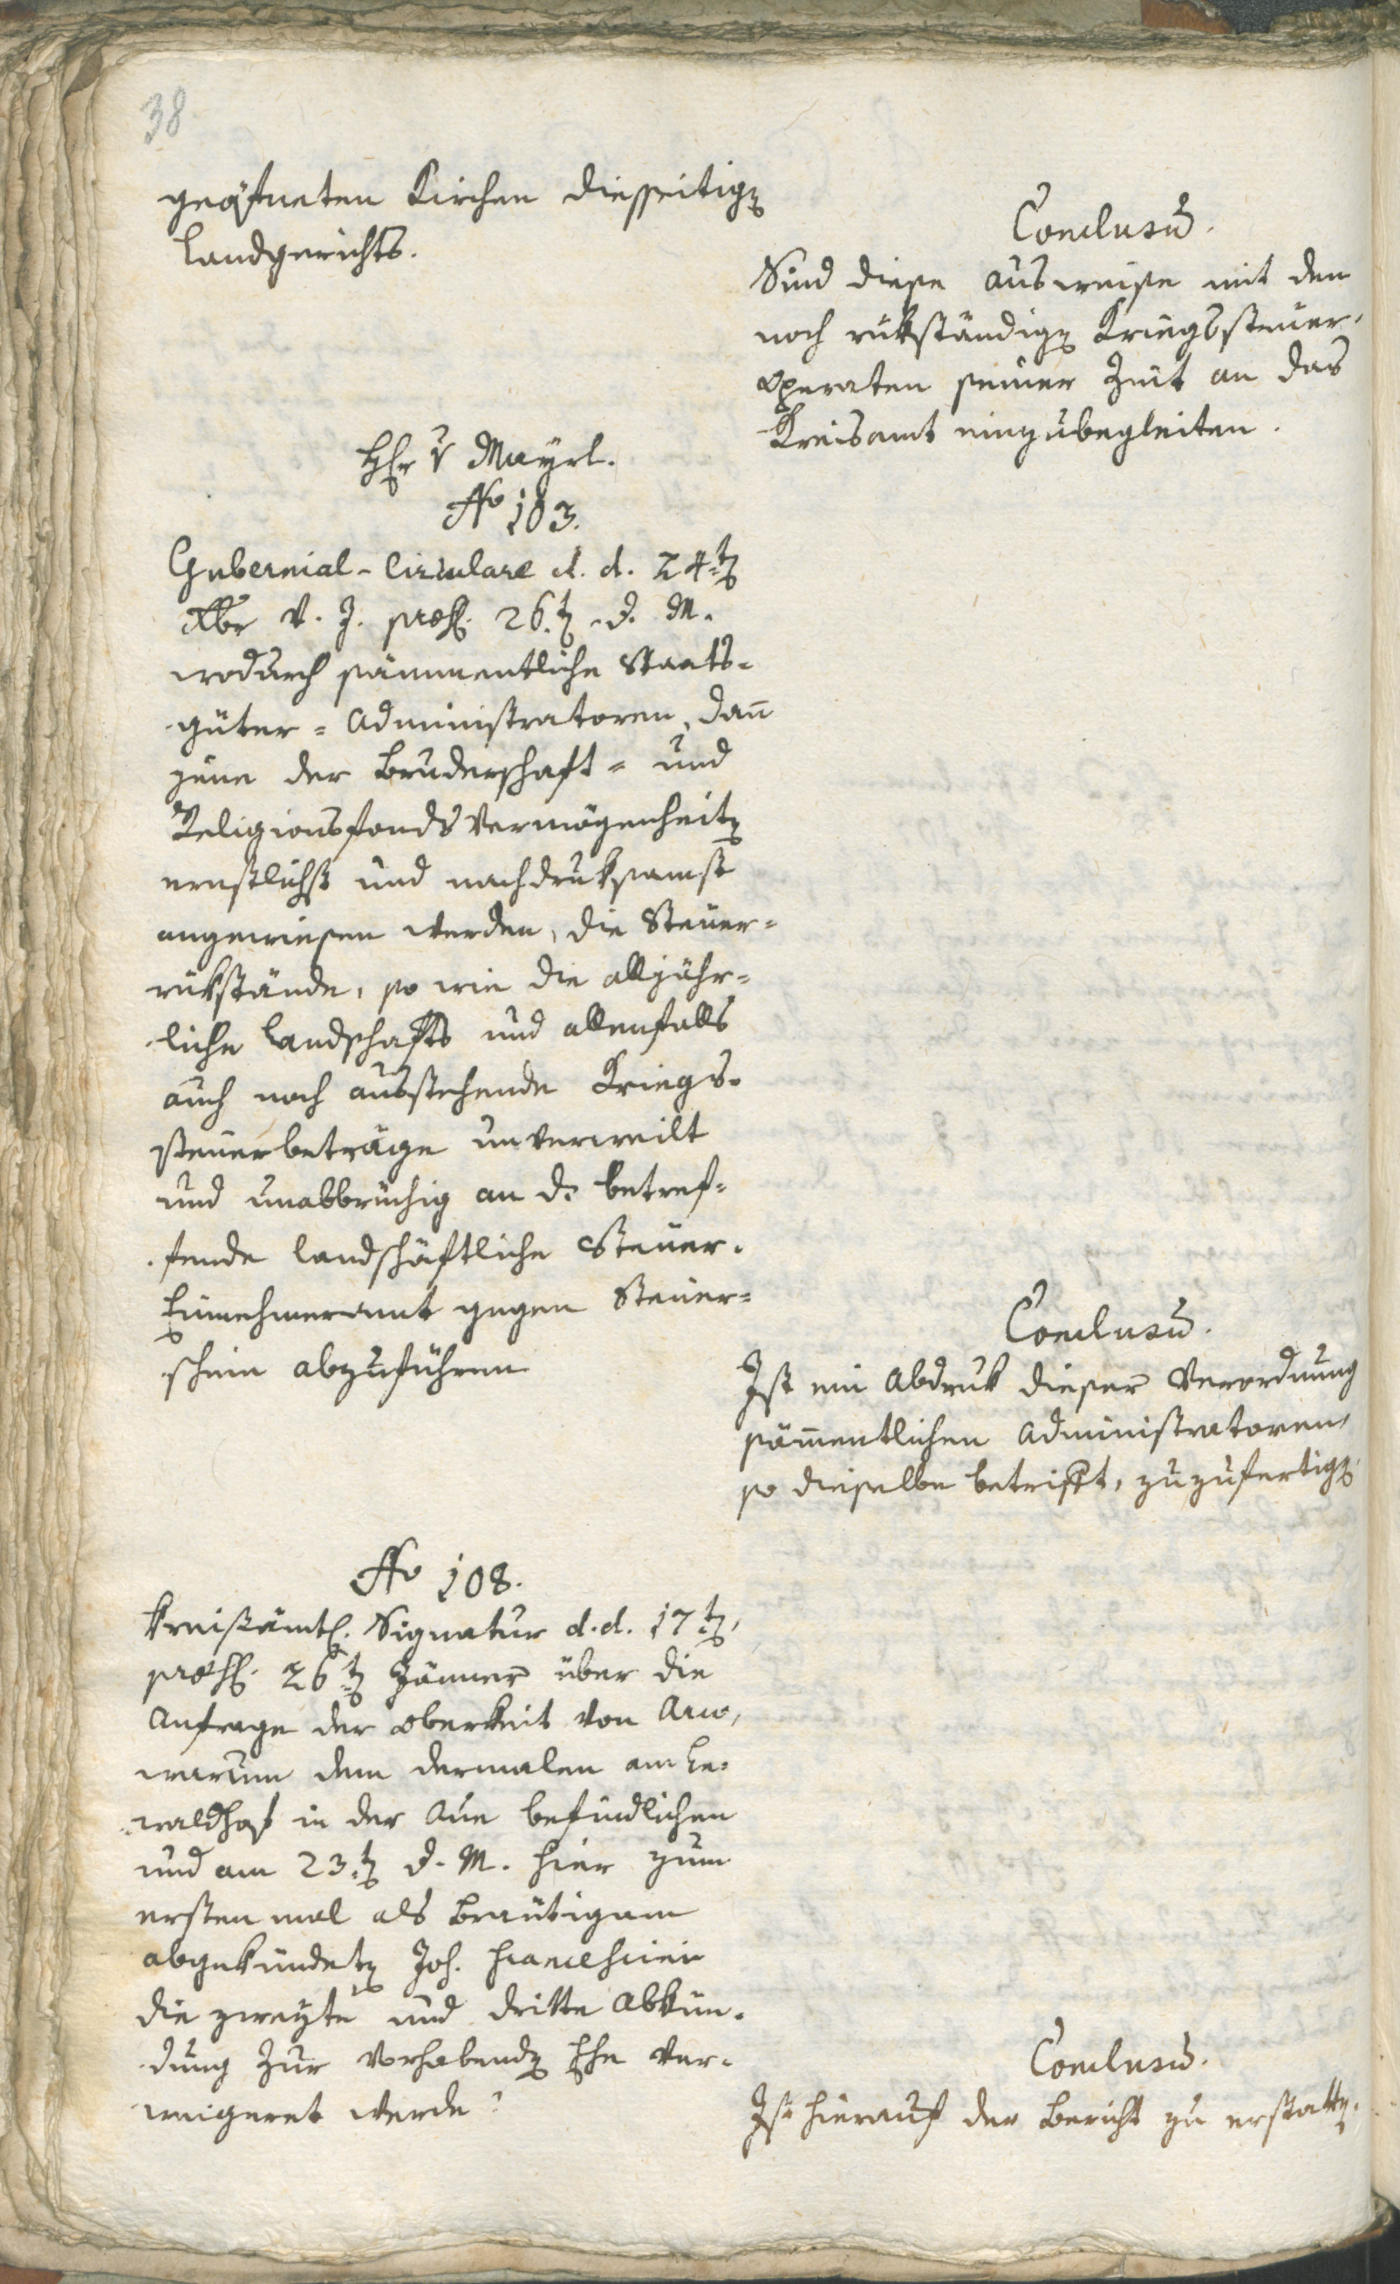 38
geöfneten Kirchen diesseitigen
Landgerichts.
Conclusum.
Sind diese Ausweise mit den
noch rükständigen Kriegssteuer-
operaten seiner Zeit an das
Kreisamt einzubegleiten.
Hr v Mayrl.
No 103.
Gubernial-Circulare d. d. 24ten
Xber v. J. praes. 26.ten d. M.
wodurch sämmentliche Staats-
güter-Administratoren, dann
jene der Bruderschaft- und
Religionsfonds Vermögenheiten
ernstlichst und nachdruksamst
angewiesen werden, die Steuer-
rükstände, so wie die alljähr-
liche Landschafts und allenfalls
auch noch ausstehende Kriegs-
steuerbeträge unverweilt
und unabbrüchig an d. betref-
fende landschäftliche Steuer-
Einnehmeramt gegen Steuer-
schein abzuführen
Conclusum.
Ist ein Abdruk dieser Verordnung
sämentlichen Administratoren,
so dieselbe betrift, zuzufertigen.
No 108.
Kreisämtl. Signatur d. d. 17ten,
praes. 26ten Jänner über die
Anfrage der Oberkeit von Arco,
warum dem dermalen am
waldhof in der Aue befindlichen
und am 23.ten d. M. hier zum
erstenmal als Bräutigam
abgekündeten Joh.
die zweyte und dritte Abkün-
dung zur vorhabenden Ehe ver-
weigeret werde?
Conclusum.
Ist hierauf der Bericht zu erstatten.